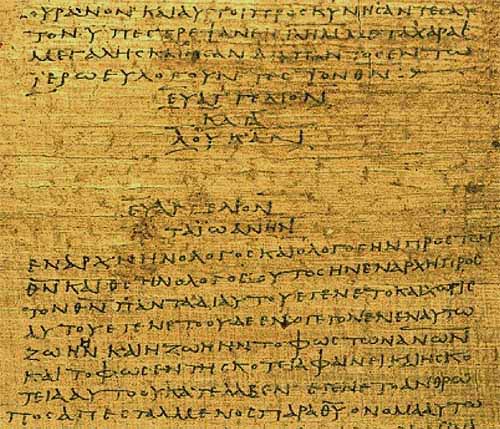 ΟΥΡΑΝΟΝ ΚΑΙ ΑΥΤΟΙ ΠΡΟΣΚΥΝΗΣΑΝΤΕΣ ΑΥ
ΤΟΝ ΥΠΕΣΤΡΕΨΑΝ ΕΙΣ ΙΗΛΗΜ ΜΕΤΑ ΧΑΡΑΣ
ΜΕΓΑΛΗΣ ΚΑΙ ΗΣΑΝ ΔΙΑ ΠΑΝΤΟΣ ΕΝ ΤΩ
ΙΕΡΩ ΕΥΛΟΓΟΥΝΤΕΣ ΤΟΝ Θ̅Ν̅
ΕΥΑΓΓΕΛΙΟΝ
ΚΑΤΑ
ΛΟΥΚΑΝ
ΕΥΑΓΓΕΛΙΟΝ
ΚΑΤΑ ΪΩΑΝΗΝ
ΕΝ ΑΡΧΗ ΗΝ Ο ΛΟΓΟΣ ΚΑΙ Ο ΛΟΓΟΣ ΗΝ ΠΡΟΣ ΤΟΝ
Θ̅Ν̅ ΚΑΙ Θ̅Σ̅ ΗΝ Ο ΛΟΓΟΣ ΟΥΤΟΣ ΗΝ ΕΝ ΑΡΧΗ ΠΡΟΣ
ΤΟΝ Θ̅Ν̅ ΠΑΝΤΑ ΔΙ ΑΥΤΟΥ ΕΓΕΝΕΤΟ ΚΑΙ ΧΩΡΙΣ
ΑΥΤΟΥ ΕΓΕΝΕΤΟ ΟΥΔΕ ΕΝ Ο ΓΕΓΟΝΕΝ ΕΝ ΑΥΤΩ
ΖΩΗ ΗΝ ΚΑΙ Η ΖΩΗ ΗΝ ΤΟ ΦΩΣ ΤΩΝ ΑΝ̅Ω̅Ν̅
ΚΑΙ ΤΟ ΦΩΣ ΕΝ ΤΗ ΣΚΟΤΕΙΑ ΦΑΙΝΕΙ ΚΑΙ Η ΣΚΟ
ΤΕΙΑ ΑΥΤΟ ΟΥ ΚΑΤΕΛΑΒΕΝ ΕΓΕΝΕΤΟ ΑΝΘΡΩ
ΠΟΣ ΑΠΕΣΤΑΛΜΕΝΟΣ ΠΑΡΑ Θ̅Υ̅ ΟΝΟΜΑ ΑΥΤΩ